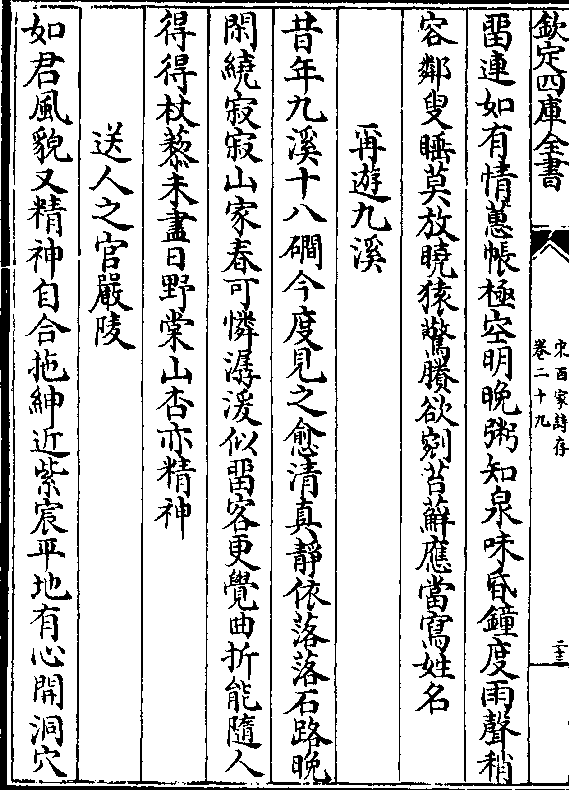 欽定四庫全書
宋百家詩存
卷二十九
二十三
畱連如有情蕙帳極空明晚粥知泉味昏鐘度雨聲稍
容鄰叟睡莫放曉猿驚賸欲剜苔蘚應當寫姓名
再遊九溪
昔年九溪十八磵今度見之愈清真靜依落落石路晚
閑繞寂寂山家春可憐潺湲似畱客更覺曲折能隨人
得得杖藜未盡日野棠山杏亦精神
送人之官嚴陵
如君風貌又精神自合拖紳近紫宸平地有心開洞穴